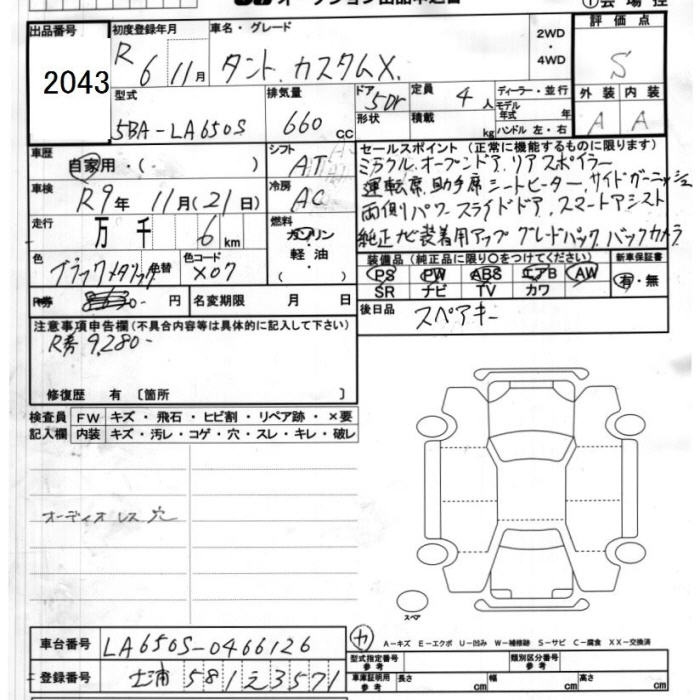 出品番号 初度登録年月 車名・グレード 2WD・4WD 評価点
2043 R 6年 11月 タント カスタムX S
型式 排気量 ドア 定員 ディーラー・並行 外装 内装
5BA-LA650S 660cc 5Dr 4人 モデル年式 年 A A
形状 積載 kg ハンドル 左・右
車歴 シフト セールスポイント (正常に機能するものに限ります)
自家用・(・ ) AT ミラクルオープンドア、リアスポイラー
車検 冷房 運転席、助手席シートヒーター、サイドガーニッシュ
R9年 11月(21日) AC 両側パワースライドドア、スマートアシスト
走行 燃料 純正ナビ装着用アップグレードパック、バックカメラ
万 千 6km ガソリン・軽油・( )
色 色替 色コード 装備品 (純正品に限り○をつけてください) 新車保証書
ブラックメタリック X07 PS PW ABS エアB AW 有・無
SR ナビ TV カワ
R券 円 名変期限 月 日 後日品 スペアキー
注意事項申告欄(不具合内容等は具体的に記入して下さい)
R券 9,280-
修復歴 有 〔箇所 〕
検査員 FW キズ・飛石・ヒビ割・リペア跡・×要
記入欄 内装 キズ・汚レ・コゲ・穴・スレ・キレ・破レ
オーディオレス穴
スペア
車台番号 LA650S-0466126 カ A-キズ E-エクボ U-凹み W-補修跡 S-サビ C-腐食 XX-交換済
登録番号 土浦 581 え 3571 型式指定番号 参考 類別区分番号 参考
車庫証明用 参考 長さ cm 幅 cm 高さ cm